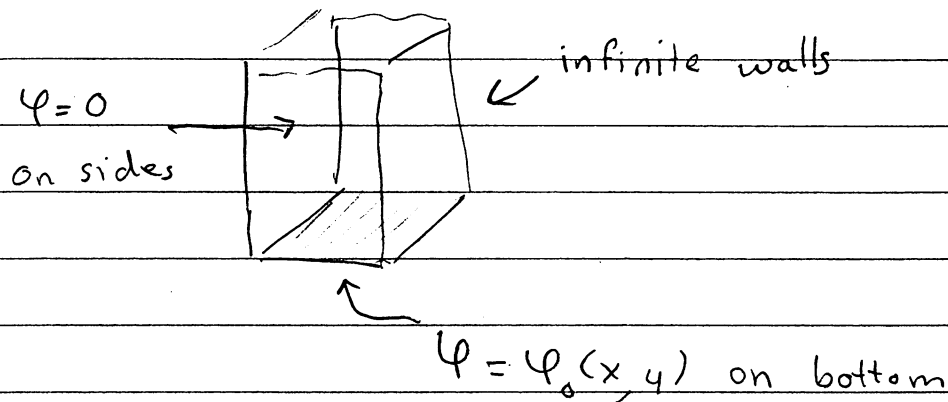 infinite walls
φ = 0
on sides
φ = φ₀(x, y) on bottom